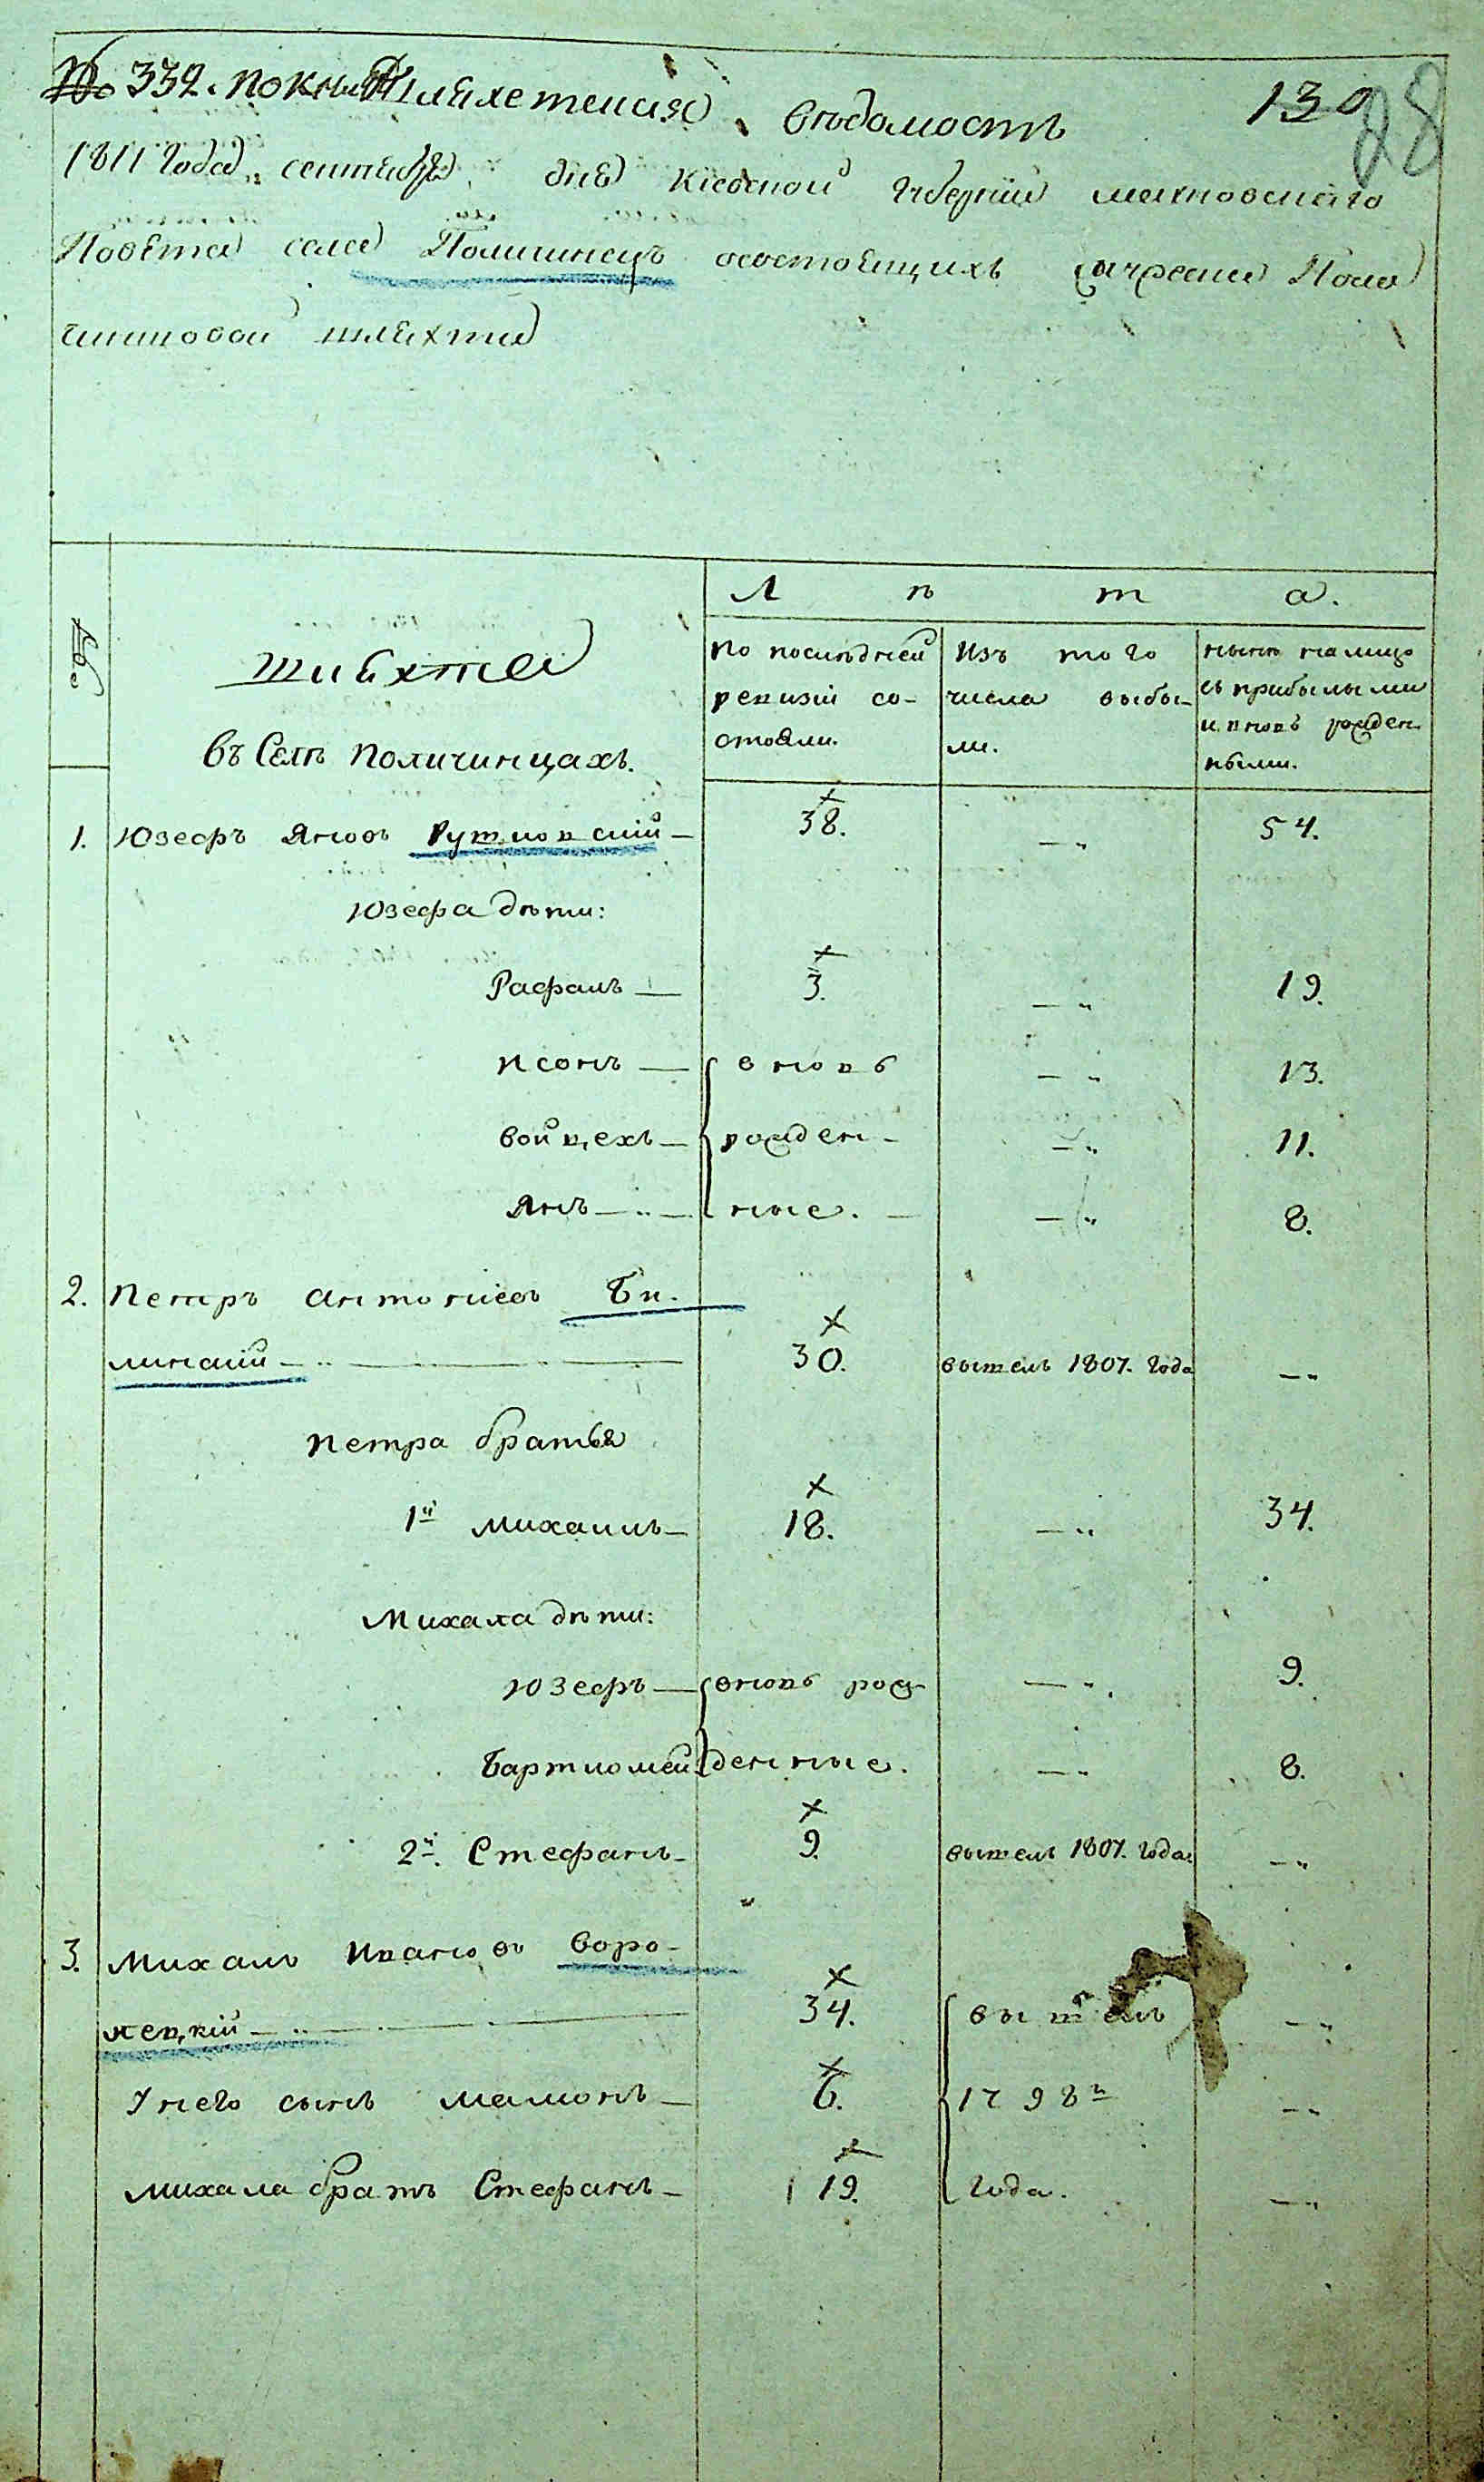 № 332. по книге Шляхетская ведомость 130
28
1811 года, сентября, дня Киевской губернии махновскаго
Повета села Поличинецъ осостоящихъ
чиншовой шляхты
Л ѣ т а.
№
Шляхта
въ Селѣ Поличинцахъ.
по послѣдней ревизіи со-стояли.
Изъ того числа выбы-ли.
нынѣ налицо съ прибылыми и вновь рожден-ными.
1. Юзефъ Яновъ Рутковскій — 38. — „ 54.
Юзефа дѣти:
Рафалъ — 3. — „ 19.
Ксонъ — вновь — „ 13.
Войцехъ — рожден- — „ 11.
Янъ — „ — ные. — — „ 8.
2. Петръ Антоніевъ Би-
линскій — 30. вышелъ 1807. года — „
Петра братья
1й Михаилъ — 18. — „ 34.
Михала дѣти:
Юзефъ — вновь рож- — „ 9.
Бартломей денные. — „ 8.
2й. Стефанъ — 9. вышелъ 1807. года. — „
3. Михалъ Ивановъ Воро-
нецкій — 34. вышелъ — „
У него сынъ мамонъ — 6. 1798го — „
Михала братъ Стефанъ — 19. года. — „